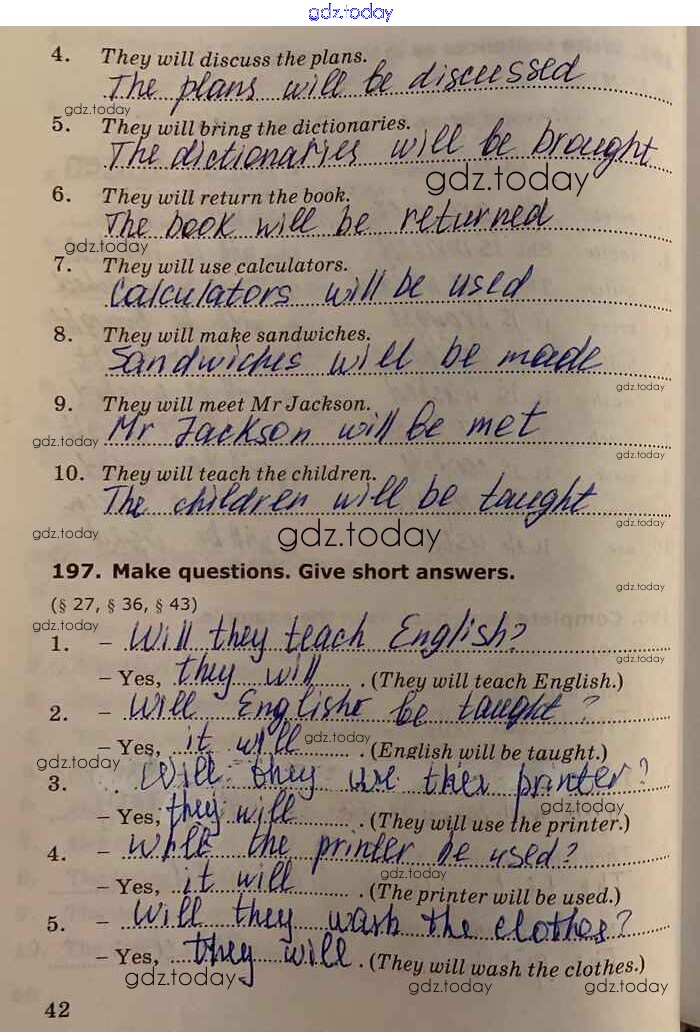 gdz.today
4. They will discuss the plans.
The plans will be discussed
gdz.today
5. They will bring the dictionaries.
The dictionaries will be brought
gdz.today
6. They will return the book.
The book will be returned
gdz.today
7. They will use calculators.
Calculators will be used
8. They will make sandwiches.
Sandwiches will be made
gdz.today
9. They will meet Mr Jackson.
Mr Jackson will be met
gdz.today
gdz.today
10. They will teach the children.
The children will be taught
gdz.today
gdz.today
gdz.today
197. Make questions. Give short answers.
gdz.today
(§ 27, § 36, § 43)
gdz.today
1. – Will they teach English?
gdz.today
– Yes, they will . (They will teach English.)
2. – Will English be taught?
gdz.today
– Yes, it will . (English will be taught.)
gdz.today
3. Will they use the printer?
gdz.today
– Yes, they will . (They will use the printer.)
4. – Will the printer be used?
gdz.today
– Yes, it will . (The printer will be used.)
5. – Will they wash the clothes?
– Yes, they will . (They will wash the clothes.)
gdz.today
gdz.today
gdz.today
42
gdz.today